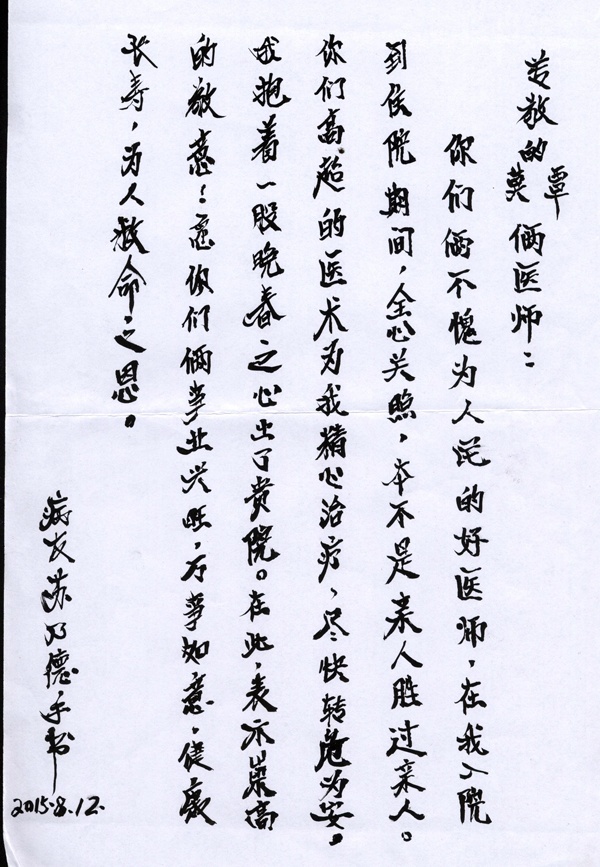 尊敬的覃莫俩医师：
你们俩不愧为人民的好医师，在我入院
到住院期间，全心关照，本不是亲人胜过亲人。
你们高超的医术为我精心治疗，尽快转危为安。
我抱着一股晚春之心出了贵院。在此，表示崇高
的敬意！愿你们俩事业兴旺，万事如意，健康
长寿，为人救命之恩。
病友苏乃德手书
2015.8.12.